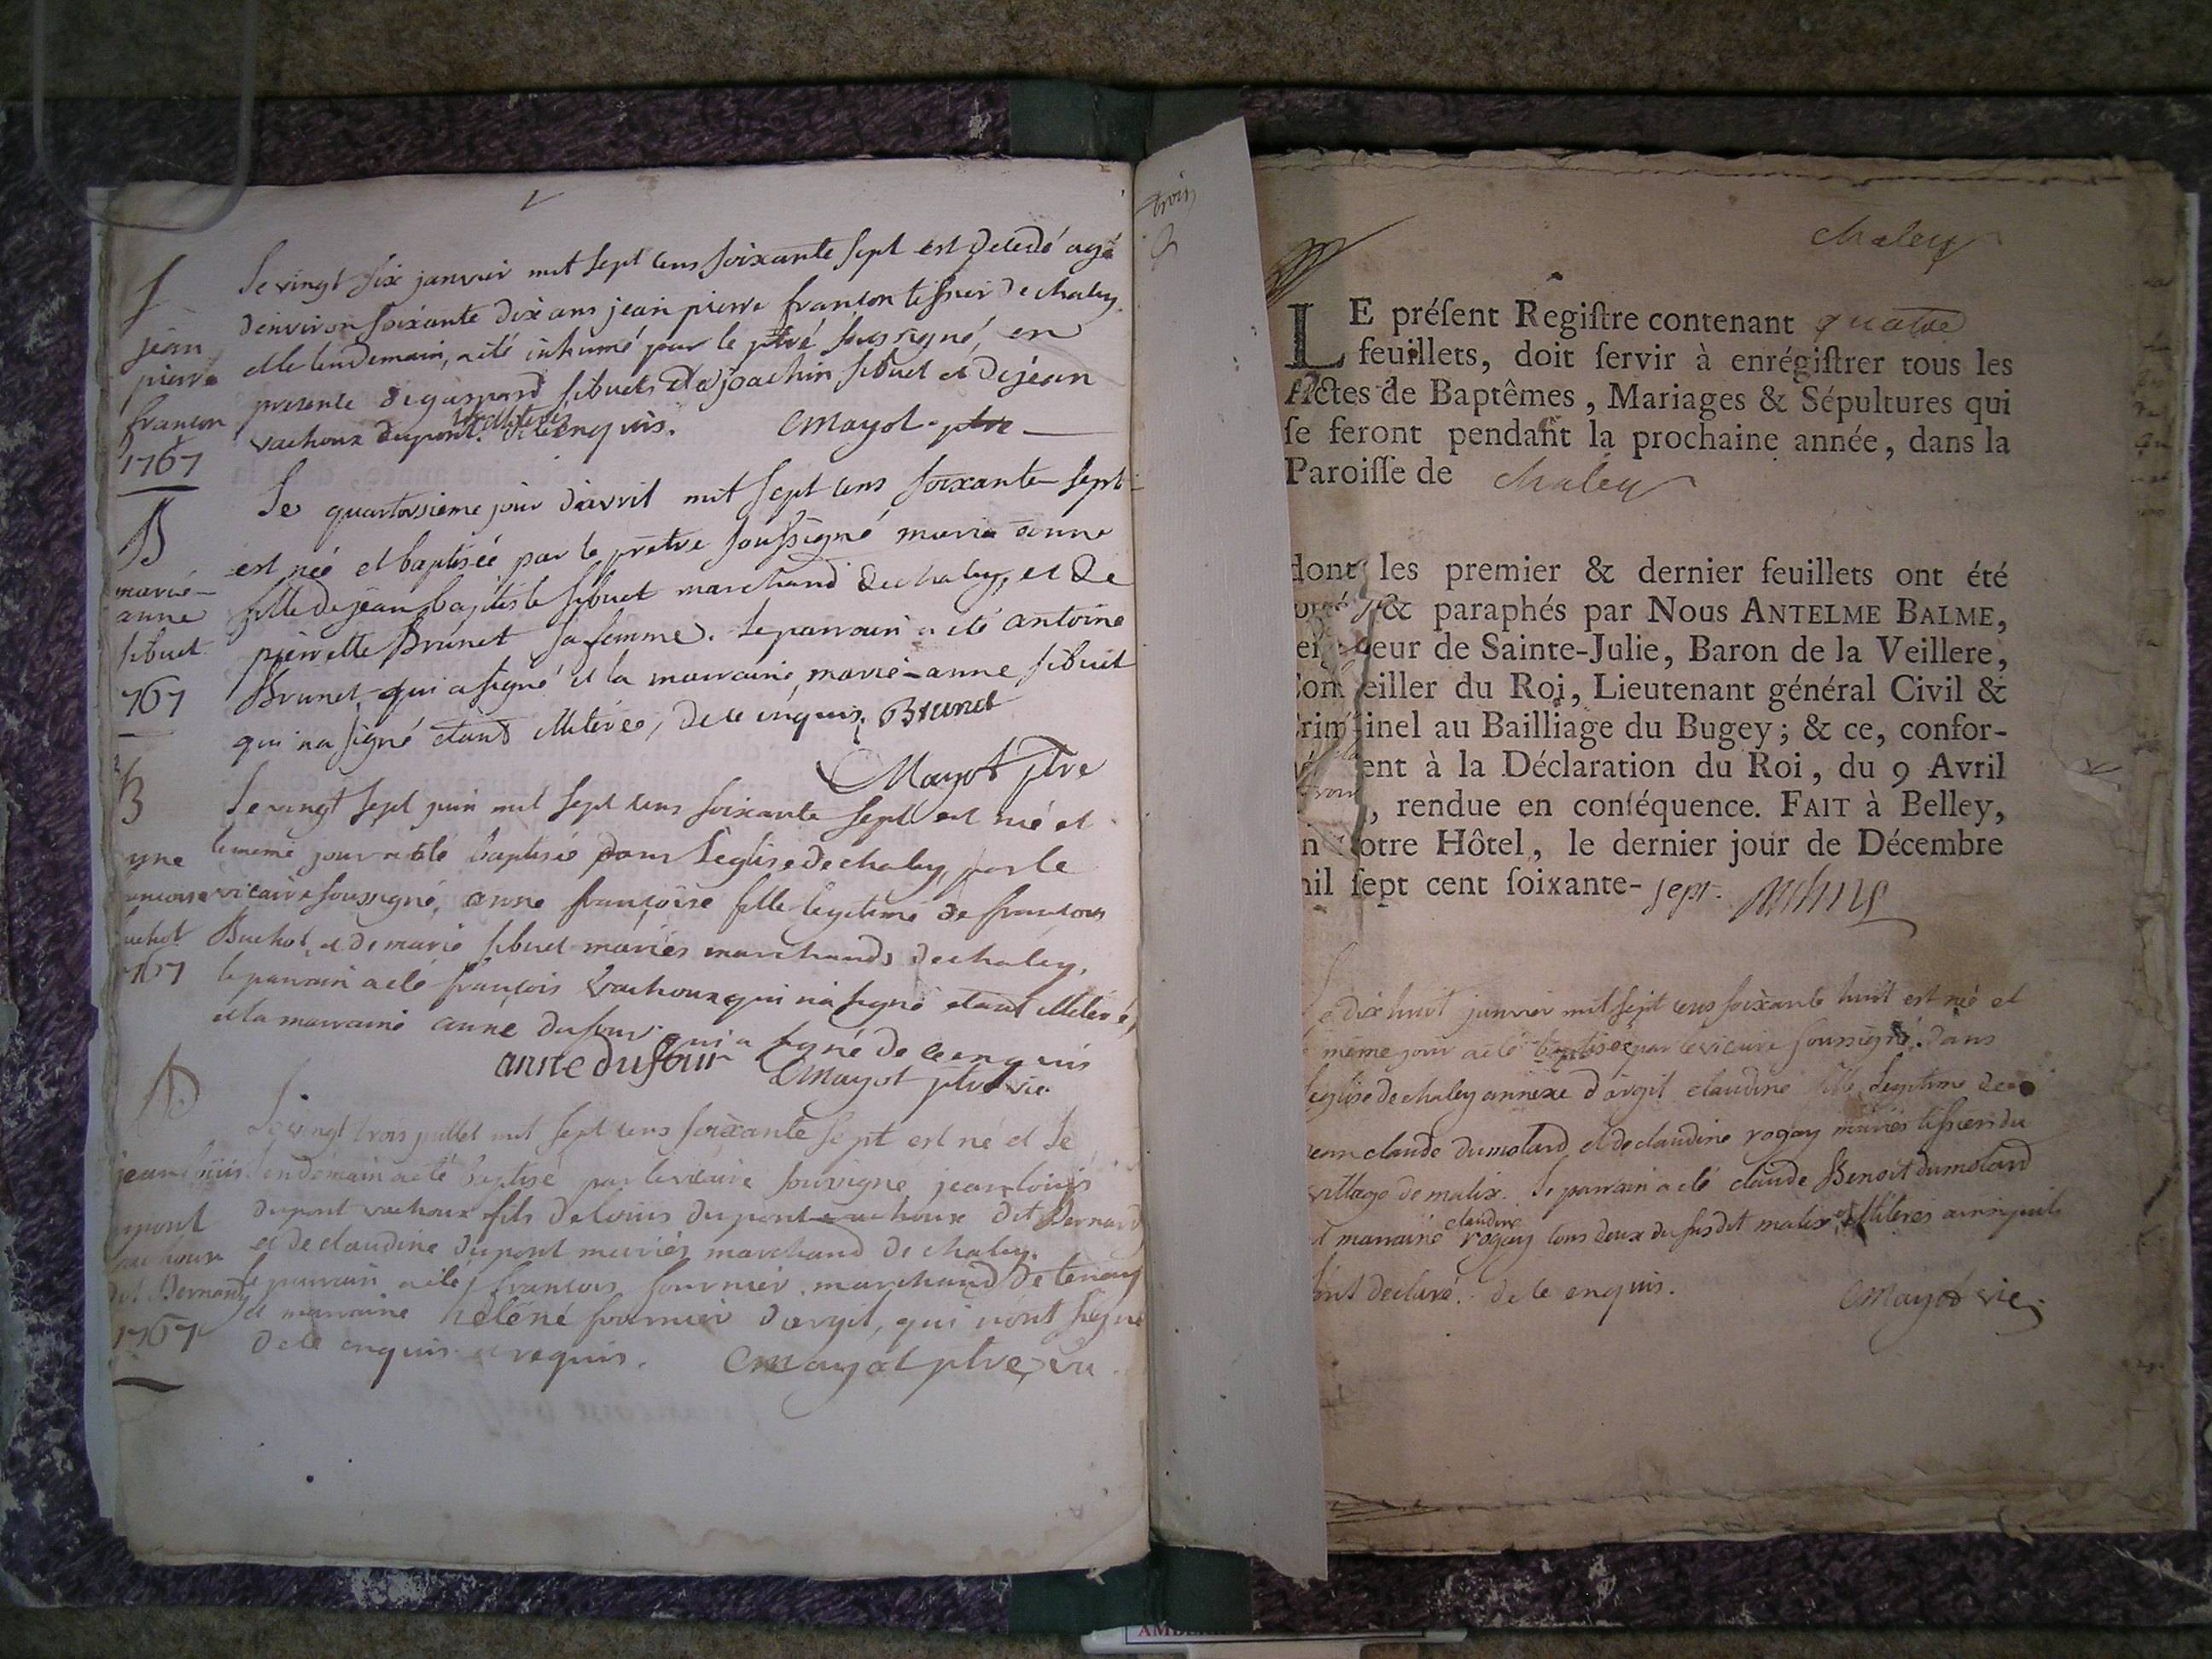 S
jean
pierre
françon
1767
Le vingt six janvier mil sept cens soixante sept est décédé agé
d'environ soixante dix ans jean pierre françon tissier de chaley
et le lendemain, a été inhumé par le ptré soussigné, en
presence de gaspard sibuet et de joachin sibuet et de jean
vachoux dupont. illiteres de ce enquis. CMayot ptre
B
marie-
anne
sibuet
767
Le quatorsieme jour d'avril mil sept cens soixante sept
est née et baptisée par le prêtre soussigné marie anne
fille de jean baptiste sibuet marchand de chaley, et de
pierrette Brunet sa femme. le parrain a été antoine
Brunet qui a signé et la marraine, marie-anne sibuet
qui n'a signé etant illiterée, de ce enquis. Brunet
CMayot ptre
B
nne
ançoise
uchot
767
Le vingt sept juin mil sept cens soixante sept est née et
le meme jour a eté baptisée dans l'église de chaley par le
vicaire soussigné, anne françoise fille legitime de françois
Buchot, et de marie sibuet mariés marchands de chaley.
le parrain a eté françois vachoux qui n'a signé etant illiteré,
et la marraine anne dufour qui a signé de ce enquis
anne dufour CMayot ptre vic.
B
jean louis
upont
vachoux
dit Bernard
1767
Le vingt trois juillet mil sept cens soixante sept est né et le
lendemain a eté baptisé par le vicaire soussigné jean louis
dupont vachoux fils de louis dupont vachoux dit Bernard
et de claudine dupont mariés marchand de chaley.
le parrain a eté françois fournier marchand de tenay
et marraine heléne fournier d'argit, qui n'ont signé
de ce enquis et requis. CMayot ptre, vic
trois
chaley
LE préſent Regiſtre contenant quatre
feuillets, doit ſervir à enrégiſtrer tous les
Actes de Baptêmes, Mariages & Sépultures qui
ſe feront pendant la prochaine année, dans la
Paroiſſe de chaley
dont les premier & dernier feuillets ont été
& paraphés par Nous ANTELME BALME,
eur de Sainte-Julie, Baron de la Veillere,
eiller du Roi, Lieutenant général Civil &
inel au Bailliage du Bugey; & ce, confor-
ent à la Déclaration du Roi, du 9 Avril
, rendue en conſéquence. FAIT à Belley,
n notre Hôtel, le dernier jour de Décembre
mil ſept cent ſoixante- sept.
Le dix huit janvier mil sept cens soixante huit est née et
même jour a eté baptisée par le vicaire soussigné. dans
l'eglise de chaley annexe d'argit claudine fille legitime de
jean claude dumolard et de claudine rogay mariés tissier du
village de malix. le parrain a eté claude Benoit dumolard
et marraine claudine rogay tous deux du susdit malix, et illiterés ainsi qu'ils
l'ont declaré. de ce enquis. CMayot vic.